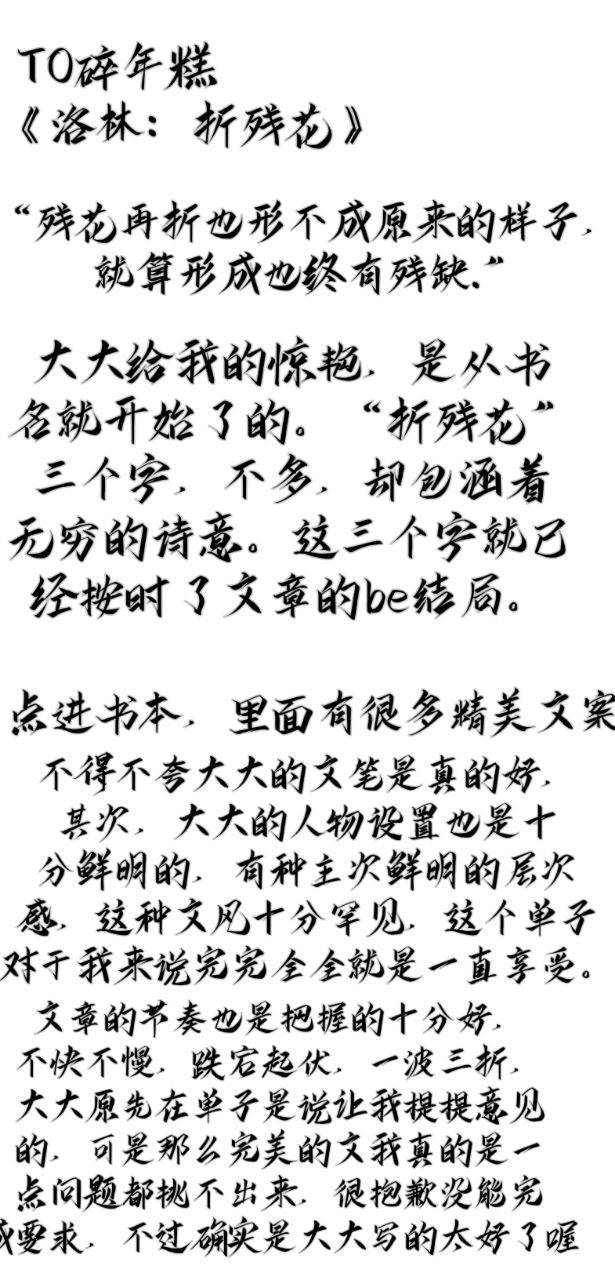 TO碎年糕
《洛林：折残花》
“残花再折也形不成原来的样子，
就算形成也终有残缺.”
大大给我的惊艳，是从书
名就开始了的。“折残花”
三个字，不多，却包涵着
无穷的诗意。这三个字就已
经按时了文章的be结局。
点进书本，里面有很多精美文案
不得不夸大大的文笔是真的好，
其次，大大的人物设置也是十
分鲜明的，有种主次鲜明的层次
感，这种文风十分罕见，这个单子
对于我来说完完全全就是一直享受。
文章的节奏也是把握的十分好，
不快不慢，跌宕起伏，一波三折，
大大原先在单子是说让我提提意见
的，可是那么完美的文我真的是一
点问题都挑不出来，很抱歉没能完
成要求，不过确实是大大写的太好了喔